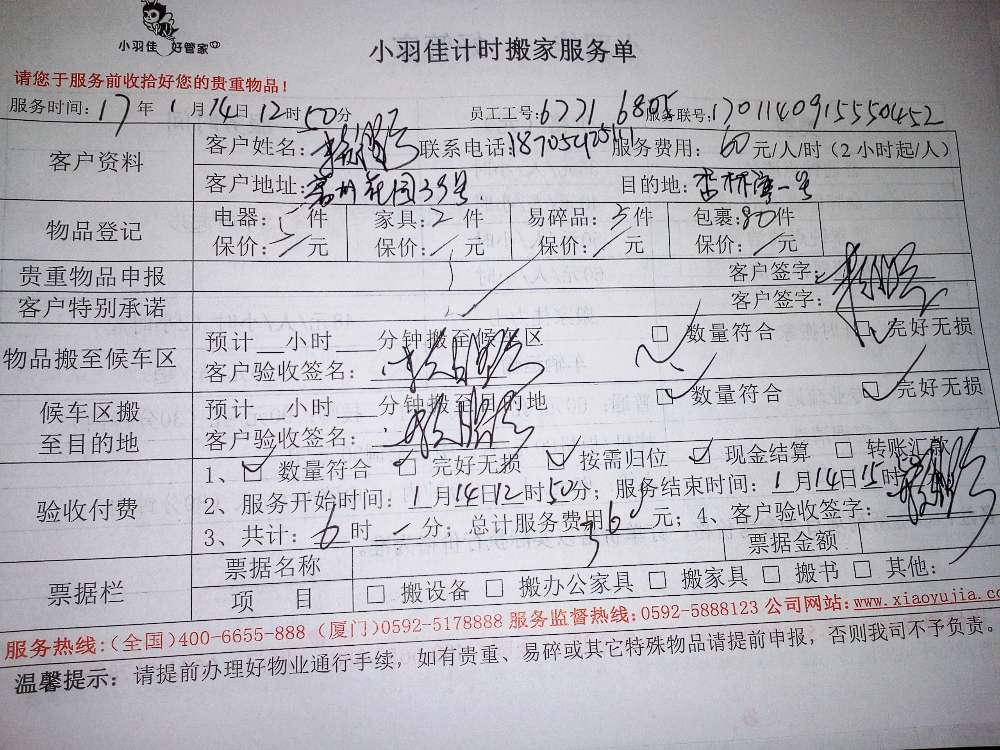 小羽佳 好管家
小羽佳计时搬家服务单
请您于服务前收拾好您的贵重物品！
服务时间：17年1月14日12时50分 员工工号：6771 6805 服务联号：1701140915550452
客户资料
客户姓名： 联系电话： 服务费用：60元/人/时（2小时起/人）
客户地址：花园39号 目的地：一号
物品登记
电器：5件 家具：2件 易碎品：3件 包裹：80件
保价：/元 保价：/元 保价：/元 保价：/元
贵重物品申报 客户签字：
客户特别承诺 客户签字：
物品搬至候车区
预计__小时___分钟搬至候车区 □ 数量符合 □ 完好无损
客户验收签名：
候车区搬至目的地
预计__小时___分钟搬至目的地 □ 数量符合 □ 完好无损
客户验收签名：
验收付费
1、□ 数量符合 □ 完好无损 □ 按需归位 □ 现金结算 □ 转账汇款
2、服务开始时间：1月14日12时50分；服务结束时间：1月14日15时
3、共计：6时-分；总计服务费用 元；4、客户验收签字：
票据栏
票据名称 票据金额
项 目 □ 搬设备 □ 搬办公家具 □ 搬家具 □ 搬书 □ 其他：
服务热线：(全国)400-6655-888 (厦门)0592-5178888 服务监督热线：0592-5888123 公司网站：www.xiaoyujia.co
温馨提示：请提前办理好物业通行手续，如有贵重、易碎或其它特殊物品请提前申报，否则我司不予负责。